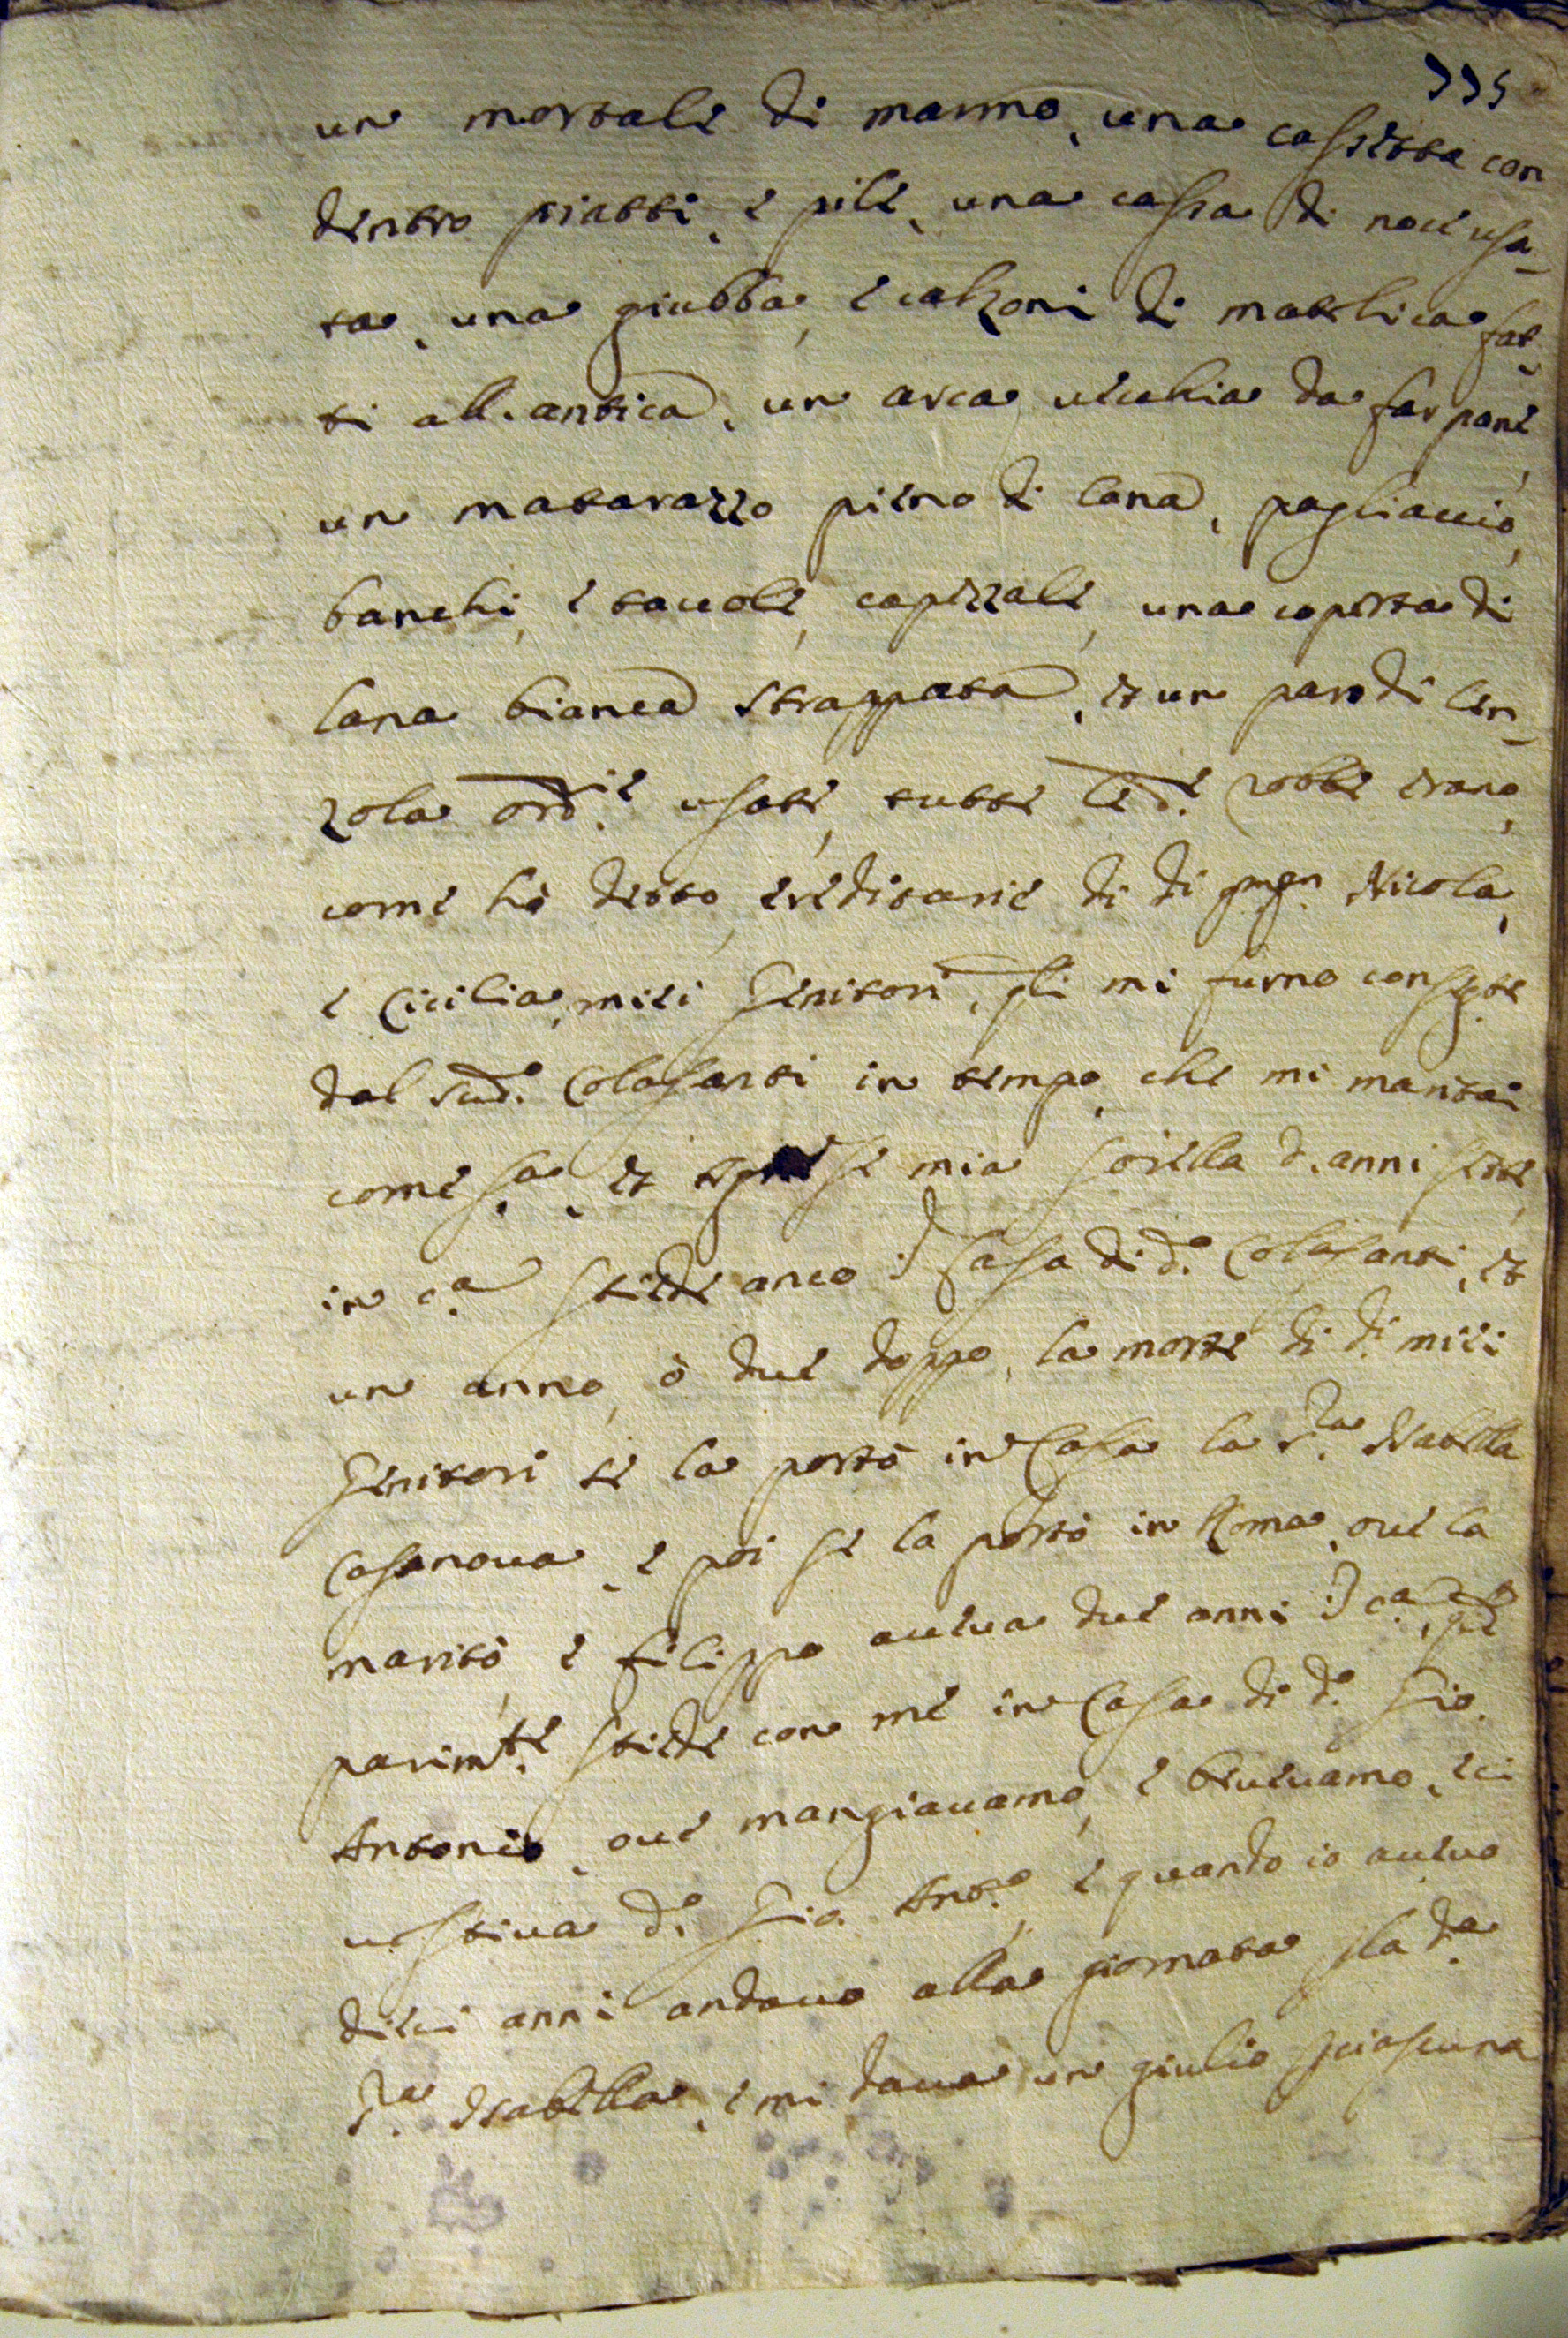 335
un mortale di marmo, una cassetta con
dentro piatti, e pile, una cassa di noce usa-
ta, una giubba, e calzoni di fat-
ti all'antica, un arca vecchia da far pane,
un matarazzo pieno di lana, pagliaccio,
banchi, e tavole, capezzale, una coperta di
lana bianca strappata, et un paro di len-
zola ord.ie usate, tutte le d.e robbe erano,
come hò detto, ereditarie di di Nicola,
e Cicilia, miei Genitori, q̃li mi furno
dal sud.o Colasanti in tempo, che mi maritai
come s.a, et mia sorella d'anni sette,
in c.a stiede anco in Casa di d.o Colasanti, et
un anno, ò due doppo la morte di d.i miei
Genitori se la portò in Casa la S.ra Isabella
Casanova, e poi se la portò in Roma, ove la
maritò, e Filippo aveva due anni in c.a,
parim.te stiede con me in Casa di d.o Gio.
Antonio, ove mangiavamo, e bevevamo, e ci
vestiva d.o Gio. Ant.o, e quando io avevo
dieci anni andavo alla giornata d.a
S.ra Isabella, e mi dava un giulio